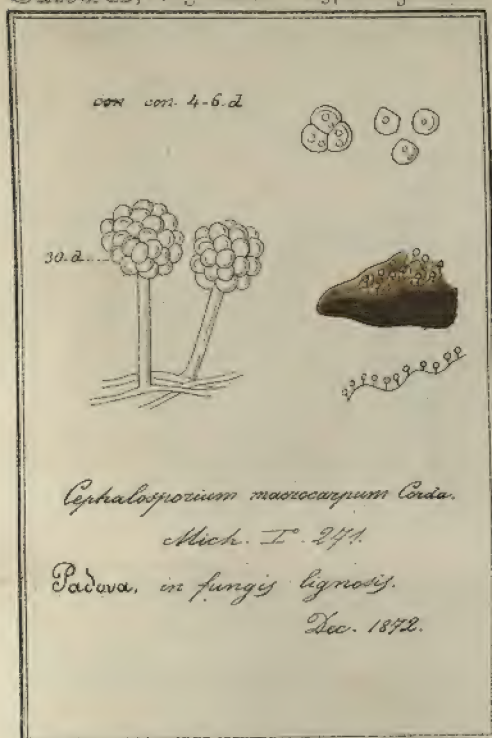 con con. 4-6. d
30. d.
Cephalosporium macrocarpum Corda.
Mich. I.° 271.
Padova. in fungis lignosis.
Dec. 1872.